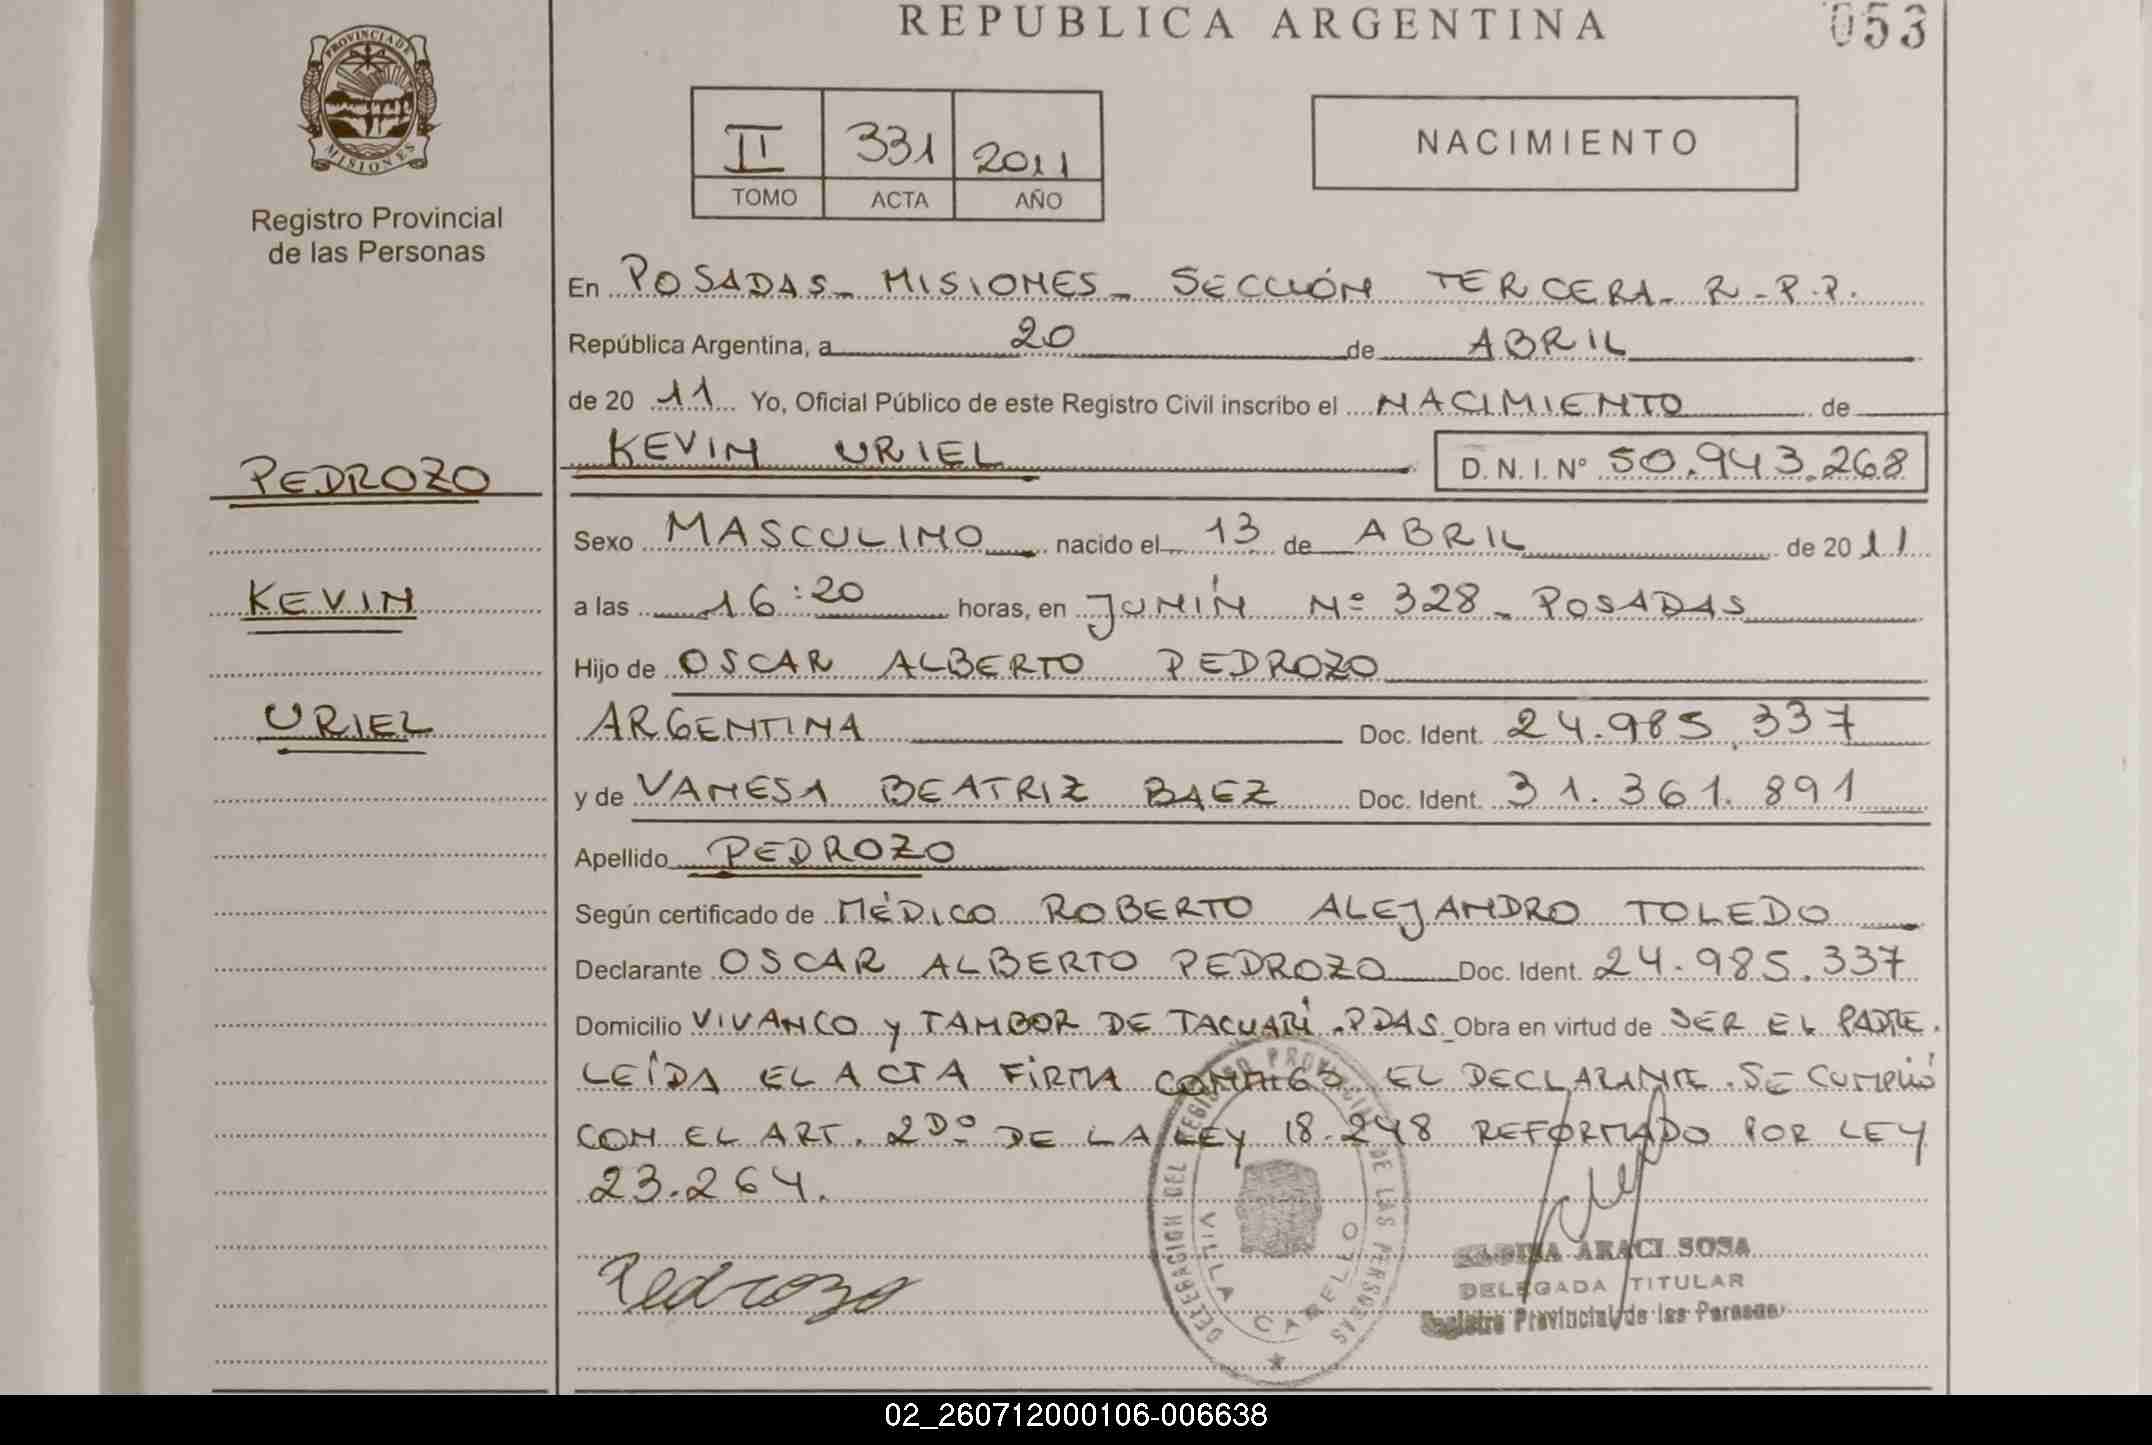 REPUBLICA ARGENTINA
053
PROVINCIA DE
MISIONES
Registro Provincial
de las Personas
II 331 2011
TOMO ACTA AÑO
NACIMIENTO
En POSADAS - MISIONES - SECCIÓN TERCERA - R-P.P.
República Argentina, a 20 de ABRIL
de 20 11 Yo, Oficial Público de este Registro Civil inscribo el NACIMIENTO de
KEVIN URIEL D. N. I. Nº 50.943.268
PEDROZO
KEVIN
URIEL
Sexo MASCULINO nacido el 13 de ABRIL de 20 11
a las 16:20 horas, en JUNÍN Nº 328 - POSADAS
Hijo de OSCAR ALBERTO PEDROZO
ARGENTINA Doc. Ident. 24.985.337
y de VANESA BEATRIZ BAEZ Doc. Ident. 31.361.891
Apellido PEDROZO
Según certificado de MÉDICO ROBERTO ALEJANDRO TOLEDO
Declarante OSCAR ALBERTO PEDROZO Doc. Ident. 24.985.337
Domicilio VIVANCO y TAMBOR DE TACUARÍ - PDAS Obra en virtud de SER EL PADRE.
LEÍDA EL ACTA FIRMA CONMIGO EL DECLARANTE. SE CUMPLIÓ
CON EL ART. 2Dº DE LA LEY 18.248 REFORMADO POR LEY
23.264.
Pedrozo
DELEGACION DEL REGISTRO PROVINCIAL DE LAS PERSONAS
VILLA CABELLO
ARACI SOSA
DELEGADA TITULAR
Registro Provincial de las Personas
02_260712000106-006638